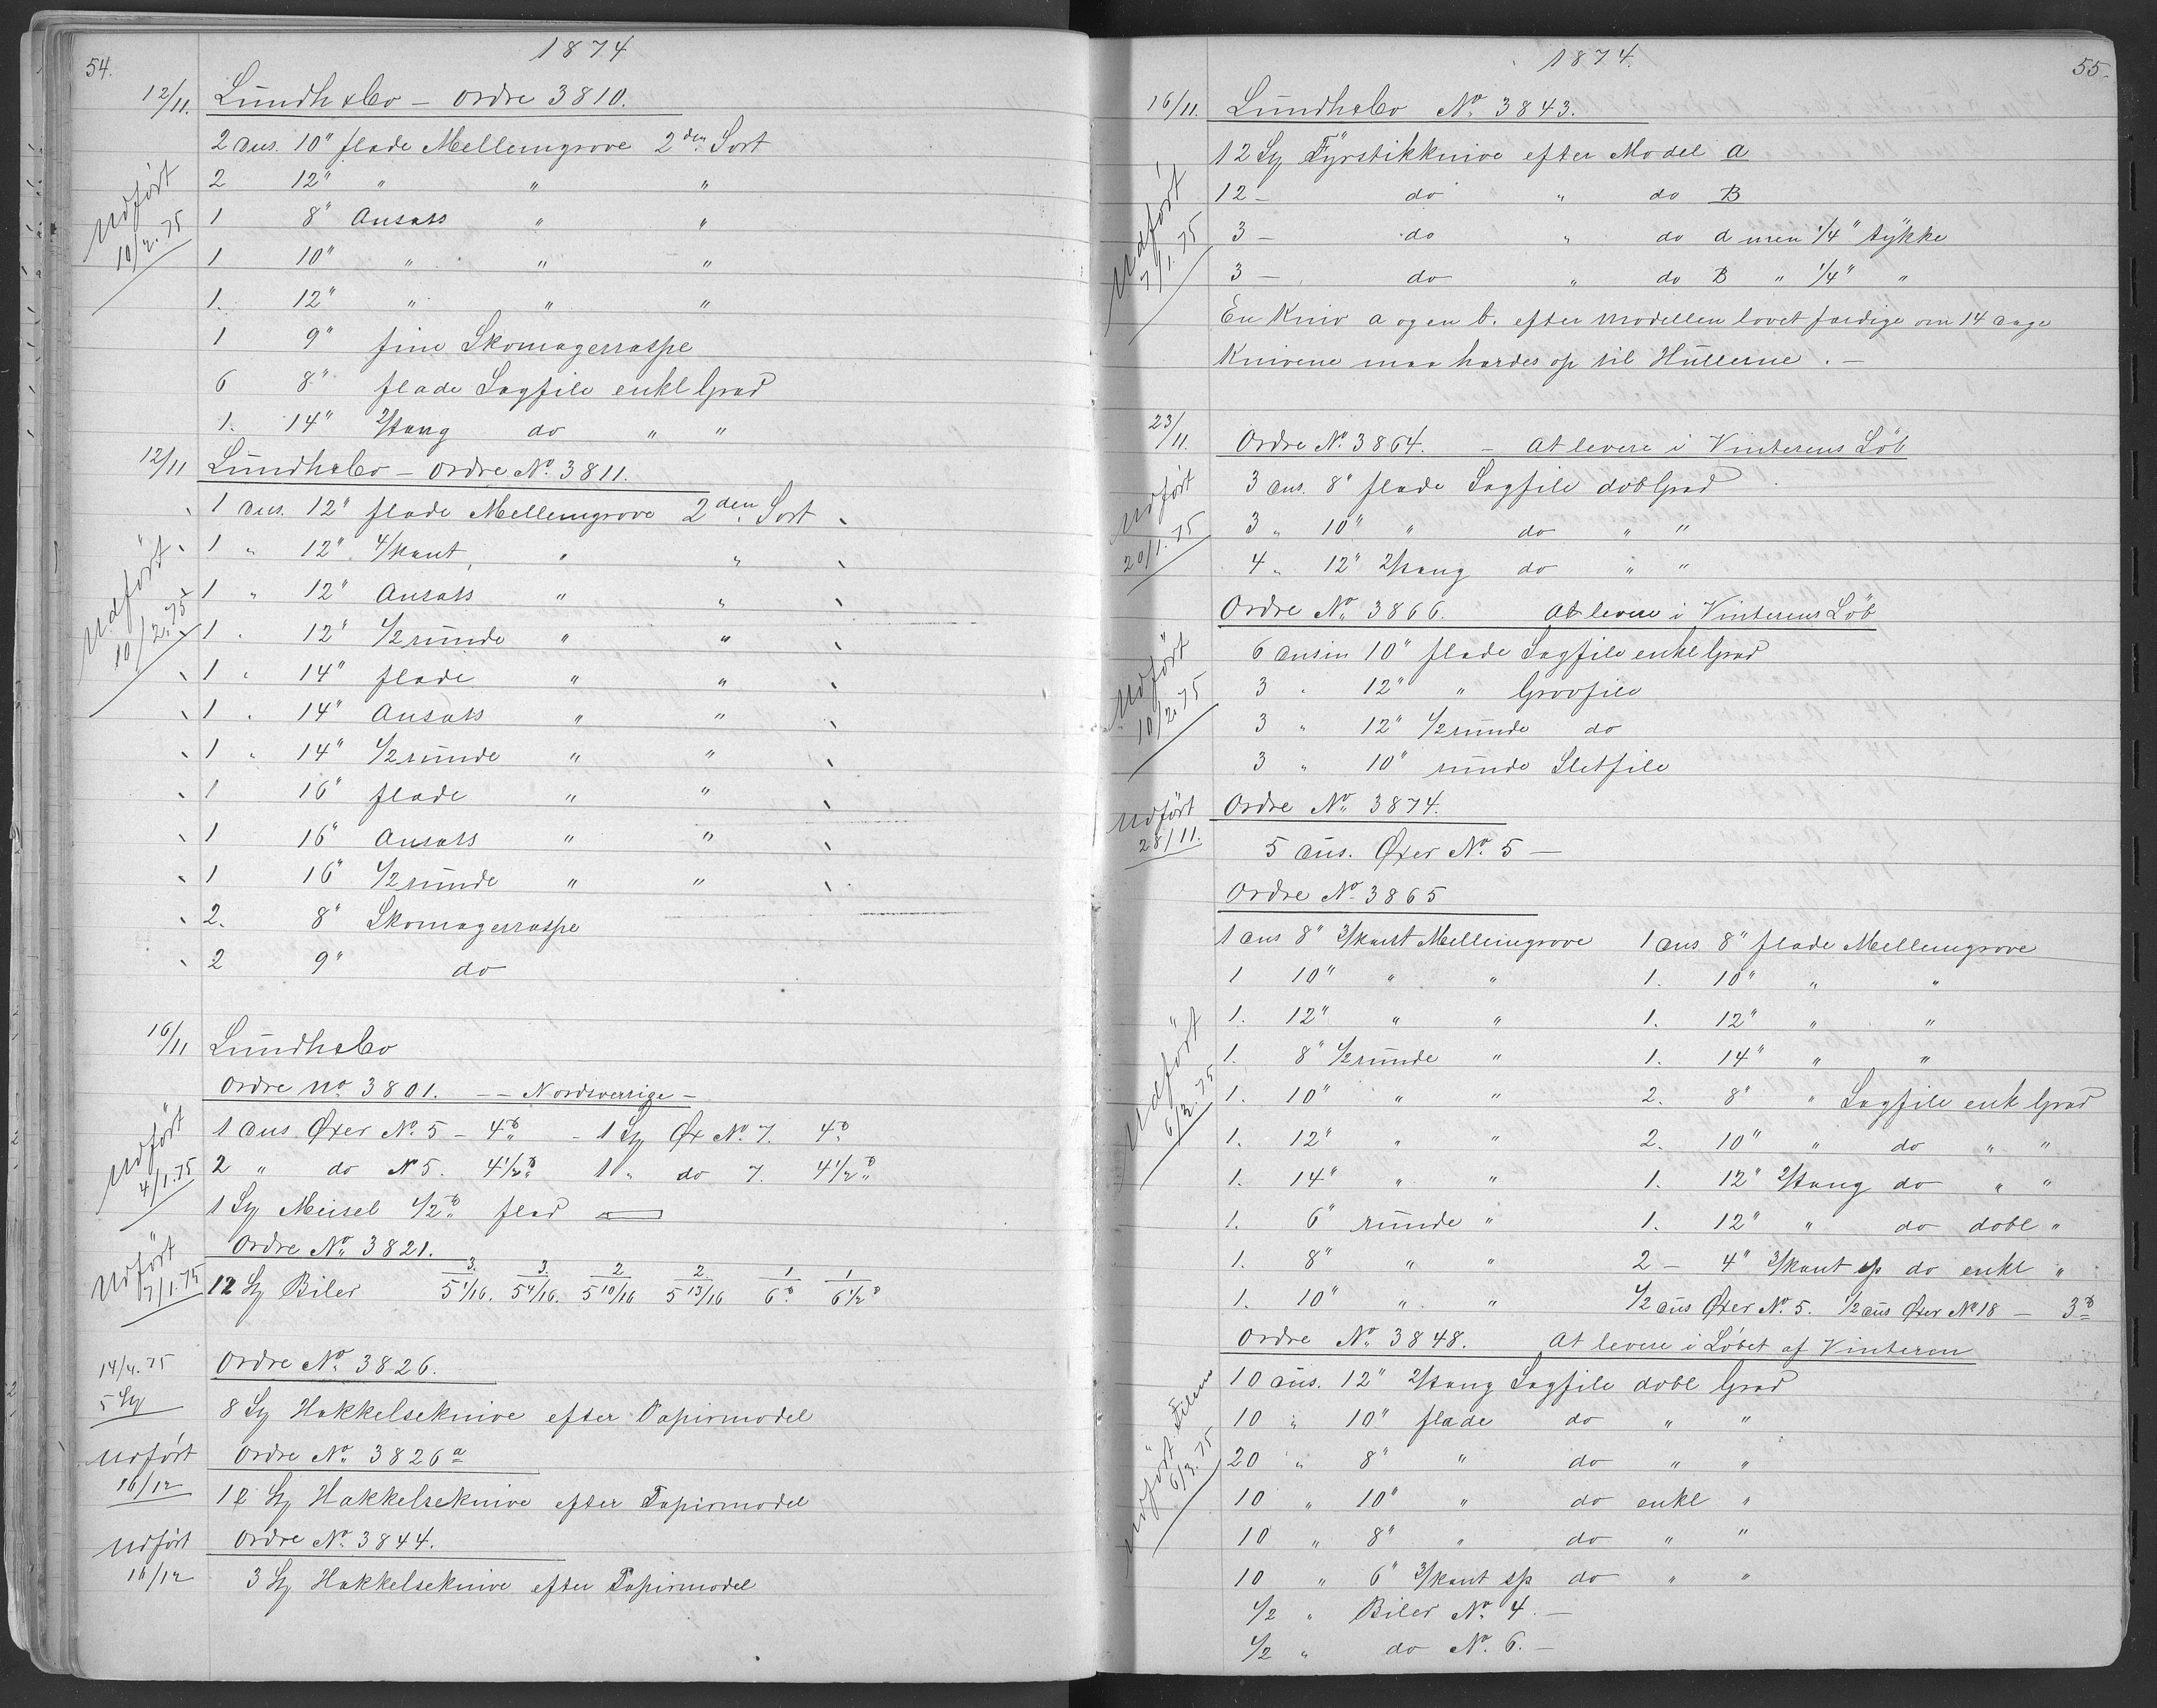 54.
1874
12/11. Lundh & Co – Ordre 3810.
2 dus. 10" flade Mellemgrove 2den Sort
2 12" " " "
Udført 10/2.75
1 8" Ansats " "
1 10" " " "
1. 12" " " "
1 9" fine Skomagerraspe
6 8" flade Sagfile enkl Grad
1. 14" 2/kang do " "
12/11 Lundh & Co – Ordre No. 3811.
1 dus. 12" flade Mellemgrove 2den Sort
1 " 12" 4/kant " "
Udført 10/2.75
1 " 12" Ansats " "
1 " 12" 1/2 runde " "
1 " 14" flade " "
1 " 14" Ansats " "
1 " 14" 1/2 runde " "
1 16" flade " "
1 16" Ansats " "
1 16" 1/2 runde " "
2. 8" Skomagerraspe
2 9" do
16/11 Lundh & Co
Ordre No. 3801. – – Nordsverrige –
Udført 4/1.75
1 dus Øxer No. 5 – 4 ℔ – 1 St Øx No. 7. 4 ℔
2 " do No 5. 4 1/2 ℔ 1 " do 7. 4 1/2 ℔
1 St Meisel 1/2 ℔ flad
Ordre No. 3821.
Udført 7/1.75
12 St Biler 3/5 1/16. 3/5 4/16. 2/5 10/16 2/5 13/16 1/6 ℔ 1/6 1/2 ℔
14/4.75 Ordre No. 3826.
5 St
8 St Hakkelseknive efter Papirmodel
Udført 16/12
Ordre No. 3826 a
12 St Hakkelseknive efter Papirmodel
Udført 16/12
Ordre No. 3844.
3 St Hakkelseknive efter Papirmodel
1874.
55.
16/11. Lundh & Co No. 3843.
12 St Fyrstikknive efter Model a
12 – do " do B
Udført 7/1.75
3 – do " do a men 1/4" tykke
3 – do " do B " 1/4" "
En Kniv a og en b. efter Modellen lovet færdige om 14 dage
Knivene maa hærdes op til Hullerne. –
23/11. Ordre No. 3864. – At levere i Vinterens Løb
Udført 20/1.75
3 dus. 8" flade Sagfile dobl Grad
3 " 10" " do " "
4 " 12" 2/kang do " "
Ordre No. 3866. At levere i Vinterens Løb
Udført 10/2.75
6 dusin 10" flade Sagfile enkl Grad
3 " 12" " Grovfile
3 " 12" 1/2 runde do
3 " 10" runde Sletfile
Udført 28/11.
Ordre No. 3874.
5 dus. Øxer No. 5 –
Ordre No. 3865
1 dus 8" 3/kant Mellemgrove 1 dus 8" flade Mellemgrove
1 10" " " 1. 10" " "
1. 12" " " 1. 12" " "
Udført 6/3.75
1. 8" 1/2 runde " 1. 14" " "
1. 10" " " 2. 8" " Sagfile enk Grad
1. 12" " " 2. 10" " do " "
1. 14" " " 1. 12" 2/kang do " "
1. 6" runde " 1. 12" " do dobl "
1. 8" " " 2 – 4" 3/kant sp do enkl "
1. 10" " " 1/2 dus Øxer No. 5. 1/2 dus Øxer No 18 – 3 ℔
Ordre No. 3848. At levere i Løbet af Vinteren
Udført Filene 6/3.75
10 dus. 12" 2/kang Sagfile dobl Grad
10 " 10" flade do " "
20 " 8" " do " "
10 " 10" " do enkl "
10 " 8" " do " "
10 " 6" 3/kant sp do " "
1/2 " Biler No. 4. –
1/2 " do No. 6. –